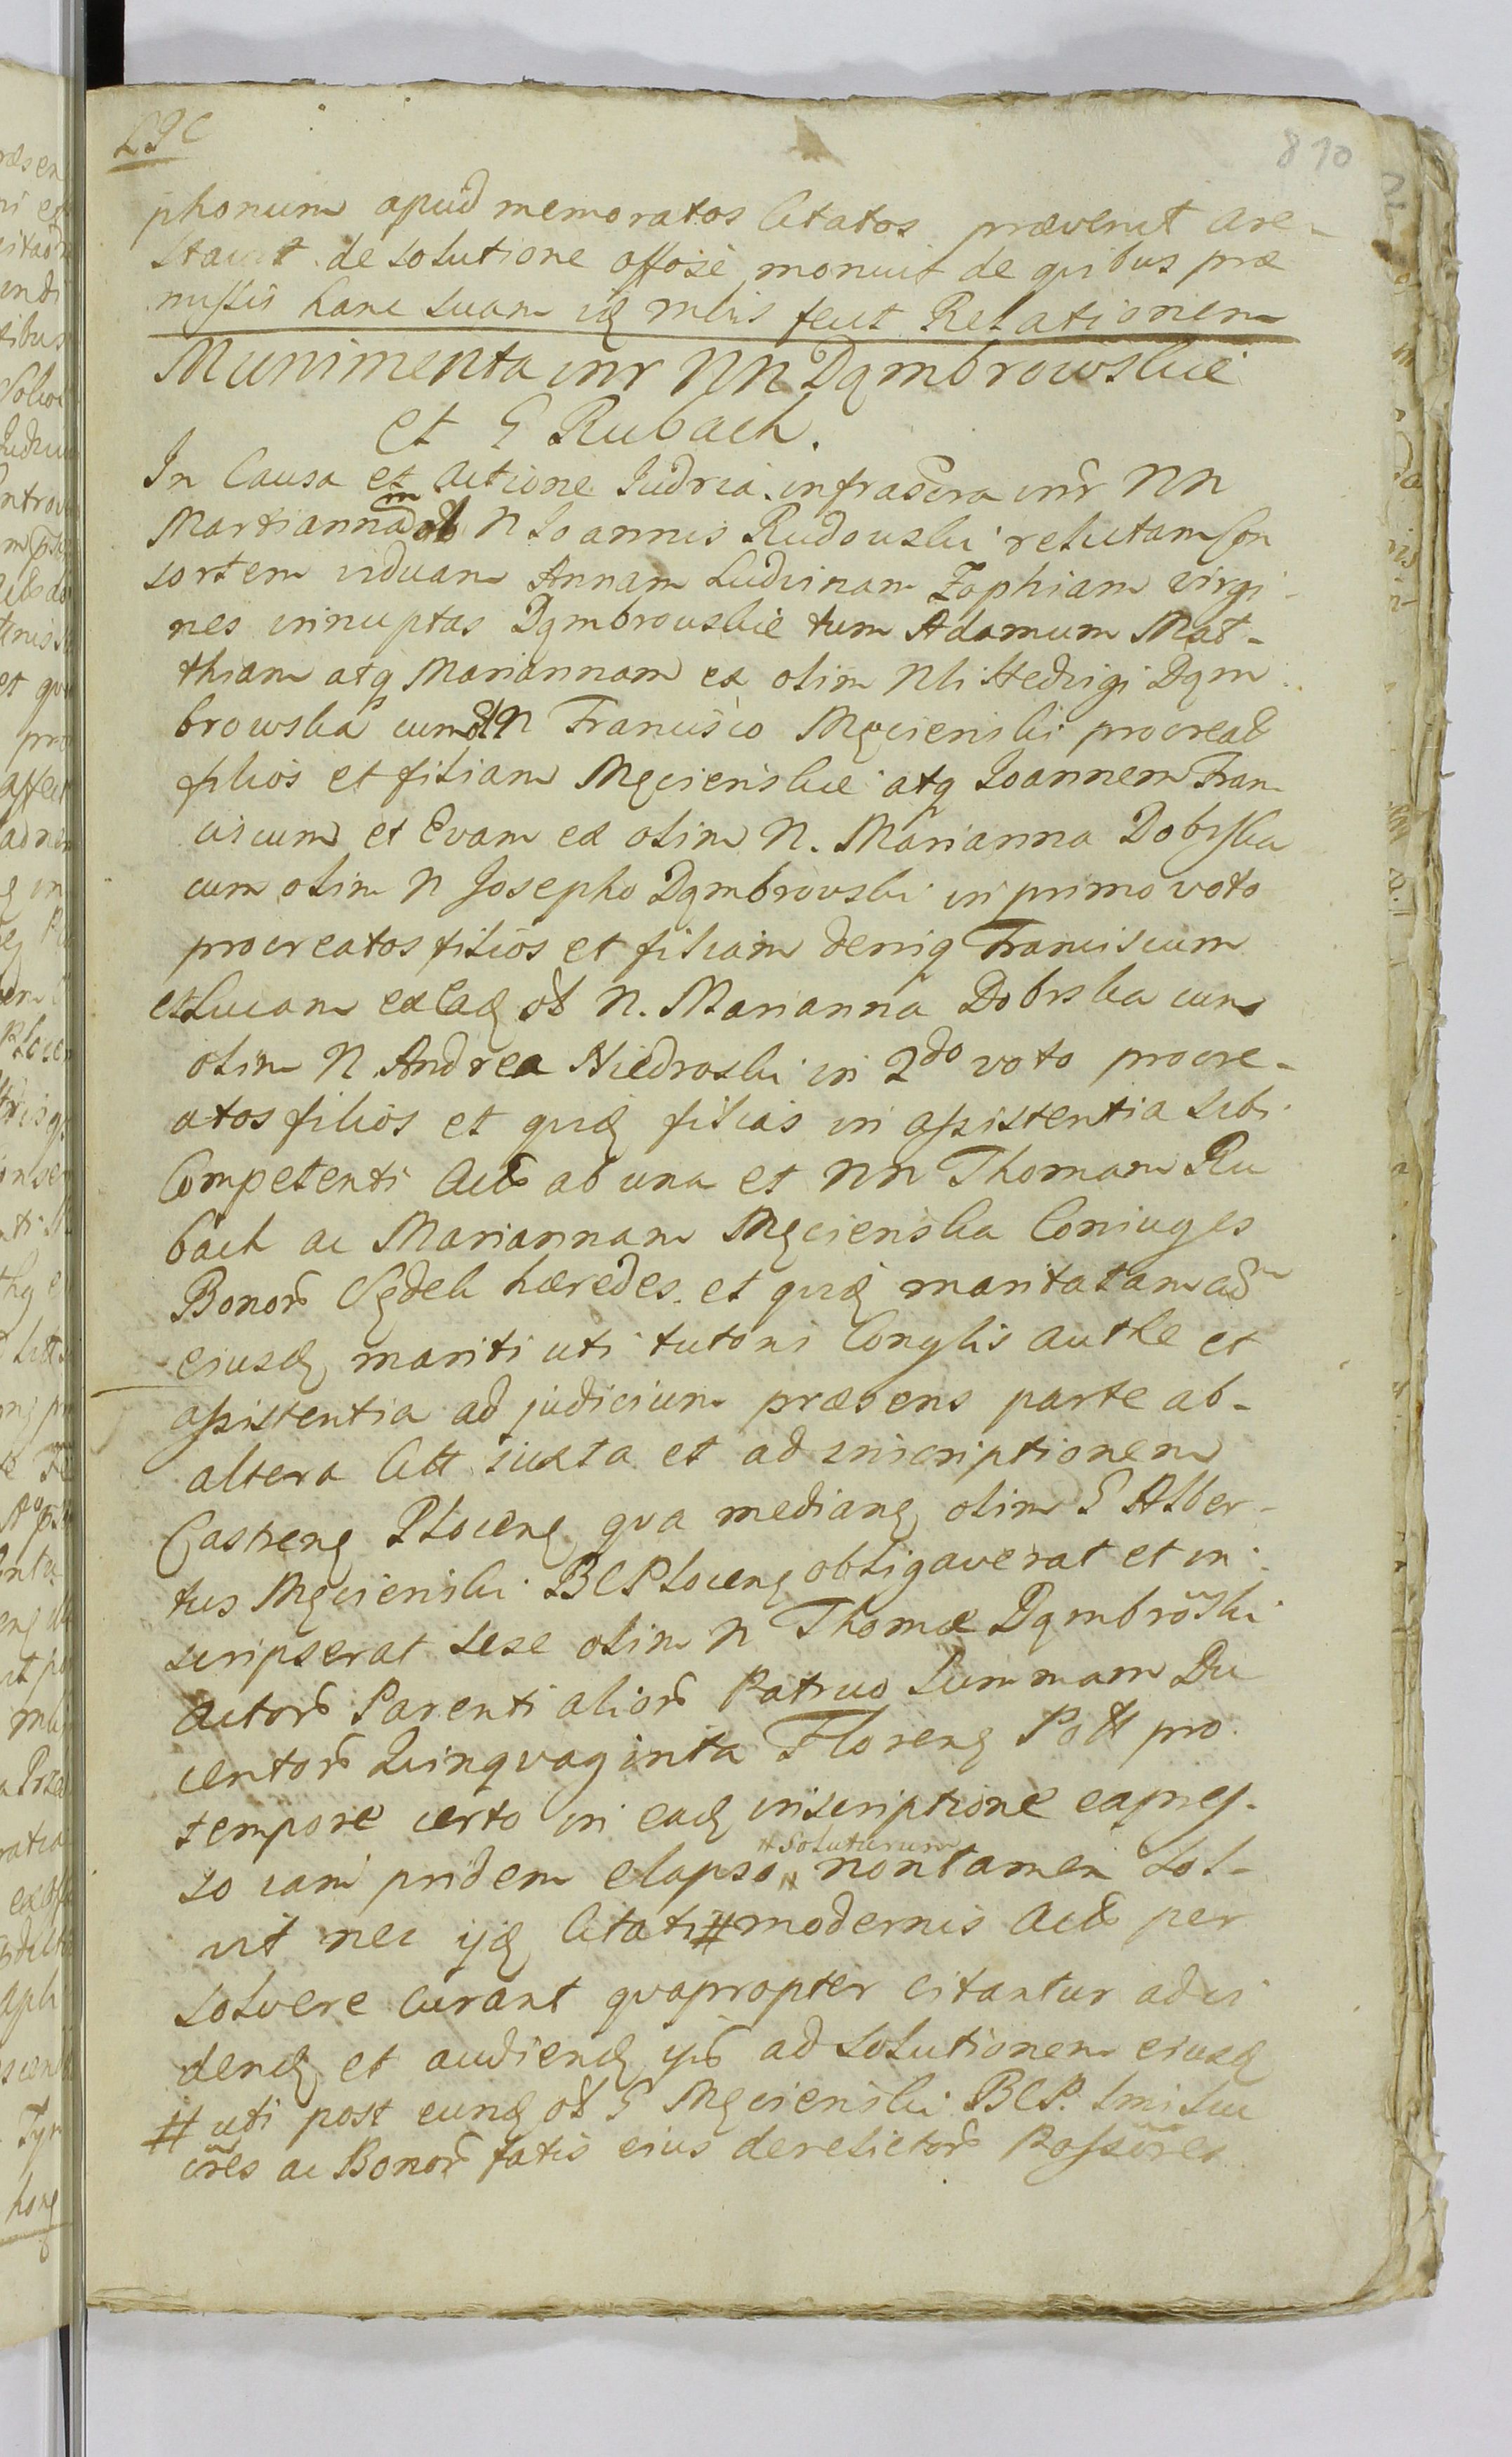 810
phonum apud memoratos Citatos prævenit are-
stavit de solutione offose monuit de quibus præ
missis hanc suam iq mbis fecit Relationem
Munimenta intr NN Dąmbrowskie
et G Rubach.
In Causa et Actione Judria infrascra intr NN
Mariannam ol N Joannis Rudowski relictam Con
sortem viduam Annam Ludvinam Zophiam virgi-
nes innuptas Dąmbrowskie tum Adamum Mat-
thiam atq Mariannam ex olim Nli Hedvigi Dąm
browska cum ol N Francisco Męcienski procreat
filios et filiam Męcienskie atq Joannem Fran
ciscum et Evam ex olim N. Marianna Dobrska
cum olim N Josepho Dąmbrowski in primo voto
procreatos filios et filiam deniq Franciscum
et Lucam ex eadq ol N. Marianna Dobrska cum
olim N Andrea Niedroski in 2do voto procre-
atos filios et quidq filias in assistentia sibi
Competenti Act ab una et NN Thomam Ru
bach ac Mariannam Męcienska Coniuges
Bonor Sędek hæredes et quidq maritatam adm
eiusdq mariti uti tutoris Conglis authe et
assistentia ad judicium præsens parte ab-
altera Citt iuxta et ad inscriptionem
Castrenq Plocenq qva medianq olim G Alber-
tus Męcienski BCPlocenq obligaverat et in
scripserat sese olim N Thomæ Dąmbroski
Actor Parenti alior Patruo Summam Du
centor Quinqvaginta Florenq Poll pro
tempore certo in eadq inscriptione expres-
so iam pridem elapso # non tamen sol-
# soluturum
vit nec ijdq Citati # modernis Act per
solvere curant qvapropter citantur ad vi
dendq et audiendq ijs ad solutionem eiusdq
# uti post eundq ol G Męcienski BCP. Imi Suc
cres ac Bonor fatis eius derelictor Possores